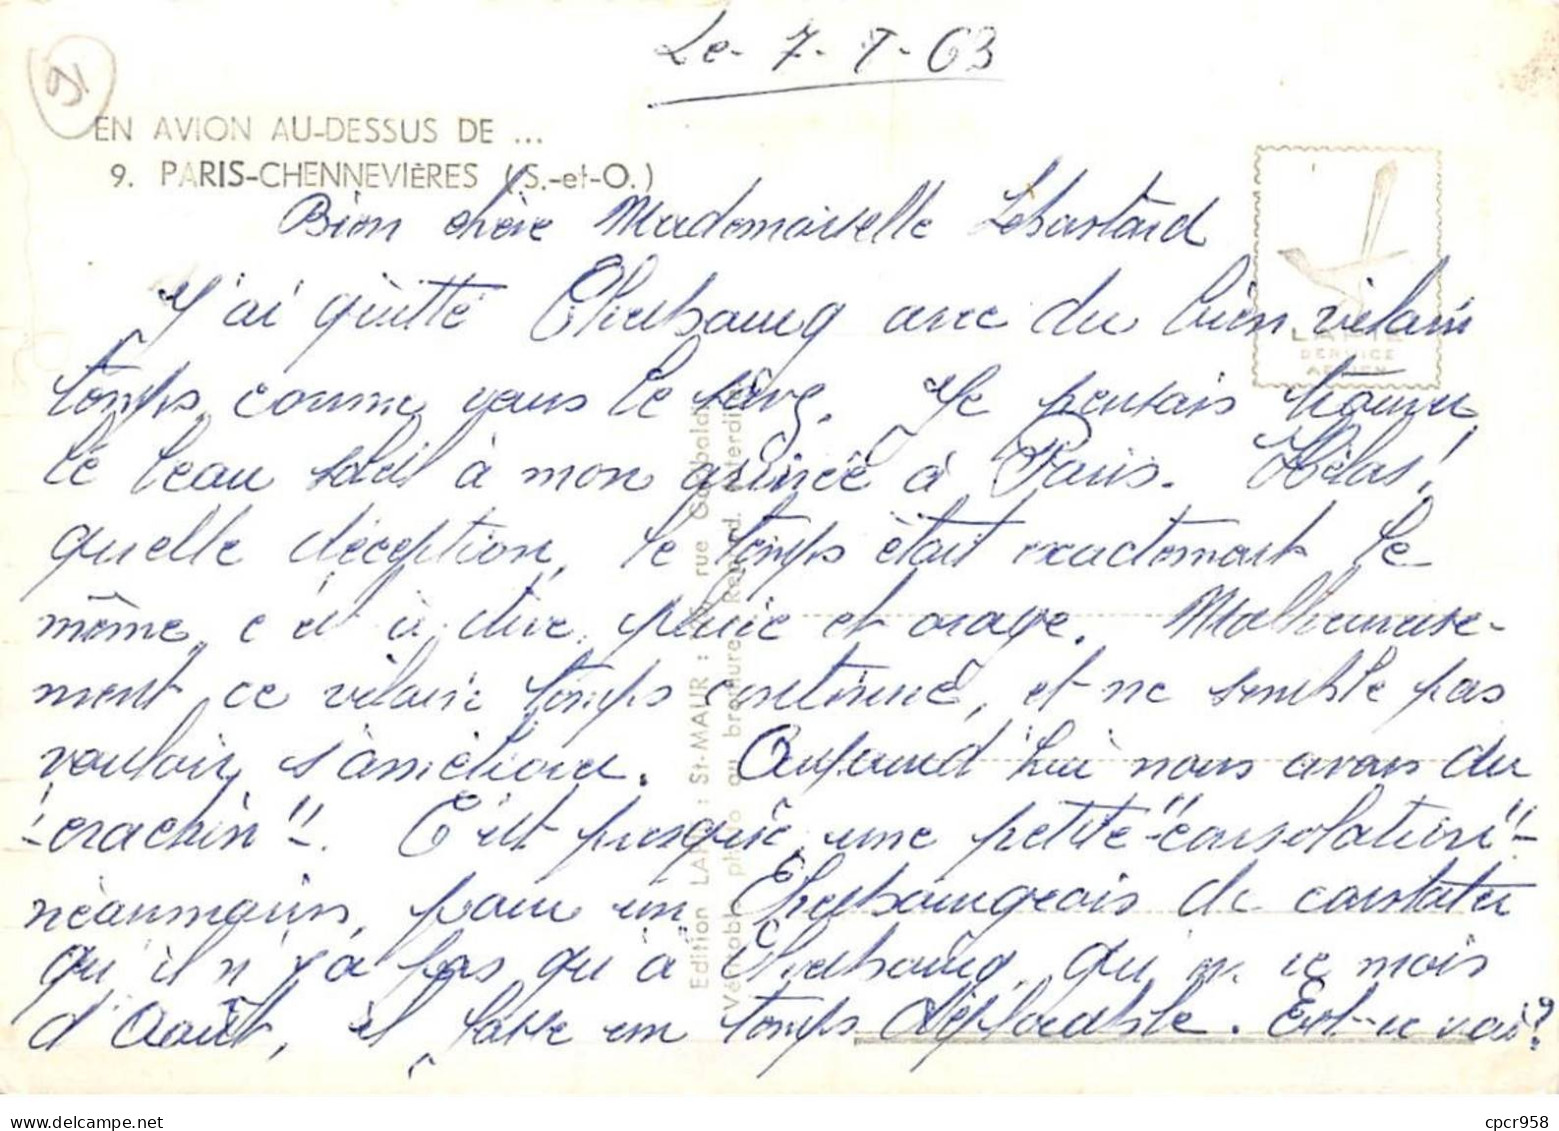 Le - 7 - 8 - 63
91
EN AVION AU-DESSUS DE ...
9. PARIS-CHENNEVIÈRES (S.-et-O.)
Bien chère Mademoiselle Lebastard
J'ai quitté Cherbourg avec du bien vilain
temps, comme vous le savez. Je pensais trouver
le beau soleil à mon arrivée à Paris. Hélas!
quelle déception, le temps était exactement le
même, c'est à dire, pluie et orage. Malheureuse-
ment ce vilain temps continue, et ne semble pas
vouloir s'améliorer. Aujourd'hui nous avons du
"crachin". C'est presque une petite "consolation"
néanmoins, pour un Cherbourgeois de constater
qu'il n'y a pas qu'à Cherbourg, qu' ce mois
d'Août, il fasse un temps déplorable. Est-ce vrai?
Edition LAPIE : St-MAUR : rue Garibaldi
Véritable photo au bromure. Reprod. interdite
LAPIE
SERVICE
AERIEN
cpcr958